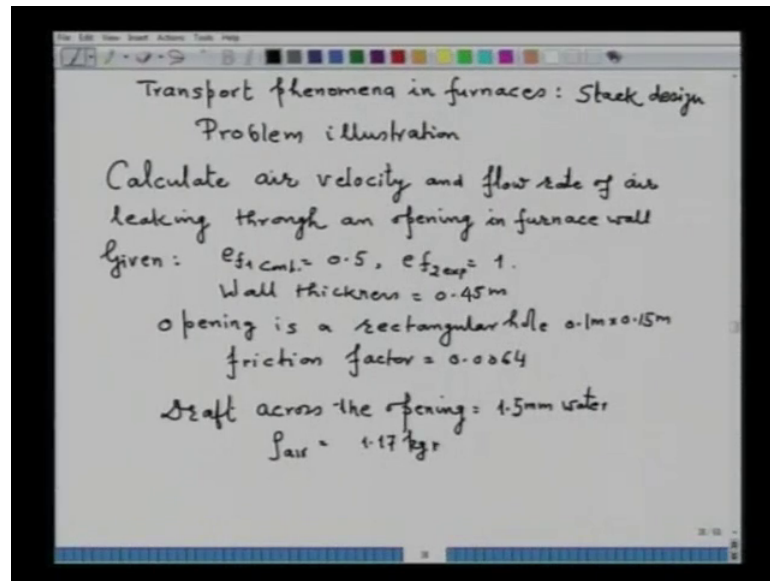 File Edit View Insert Actions Tools Help
Transport phenomena in furnaces: Stack design
Problem illustration
Calculate air velocity and flow rate of air
leaking through an opening in furnace wall
Given: ef1 cont. = 0.5, ef2 exp = 1.
Wall thickness = 0.45m
opening is a rectangular hole 0.1m x 0.15m
friction factor = 0.0064
Draft across the opening = 1.5mm water
ρair = 1.17 kg